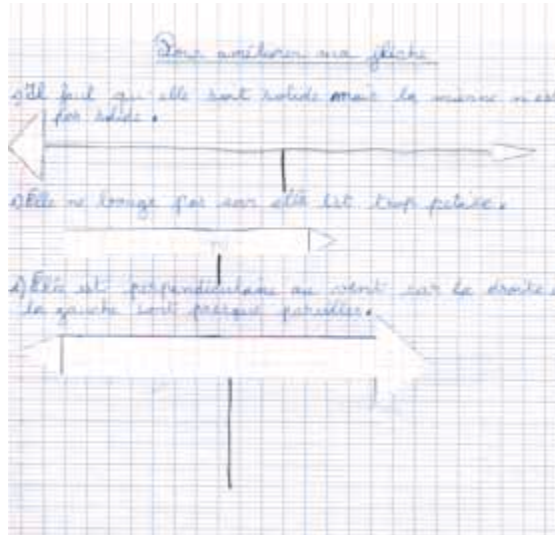 Pour améliorer ma flèche
Il faut qu'elle soit solide mais la mienne n'est
pas solide.
Elle ne bouge pas car elle est trop petite.
Elle est perpendiculaire au vent car la droite et
la gauche sont presque pareilles.